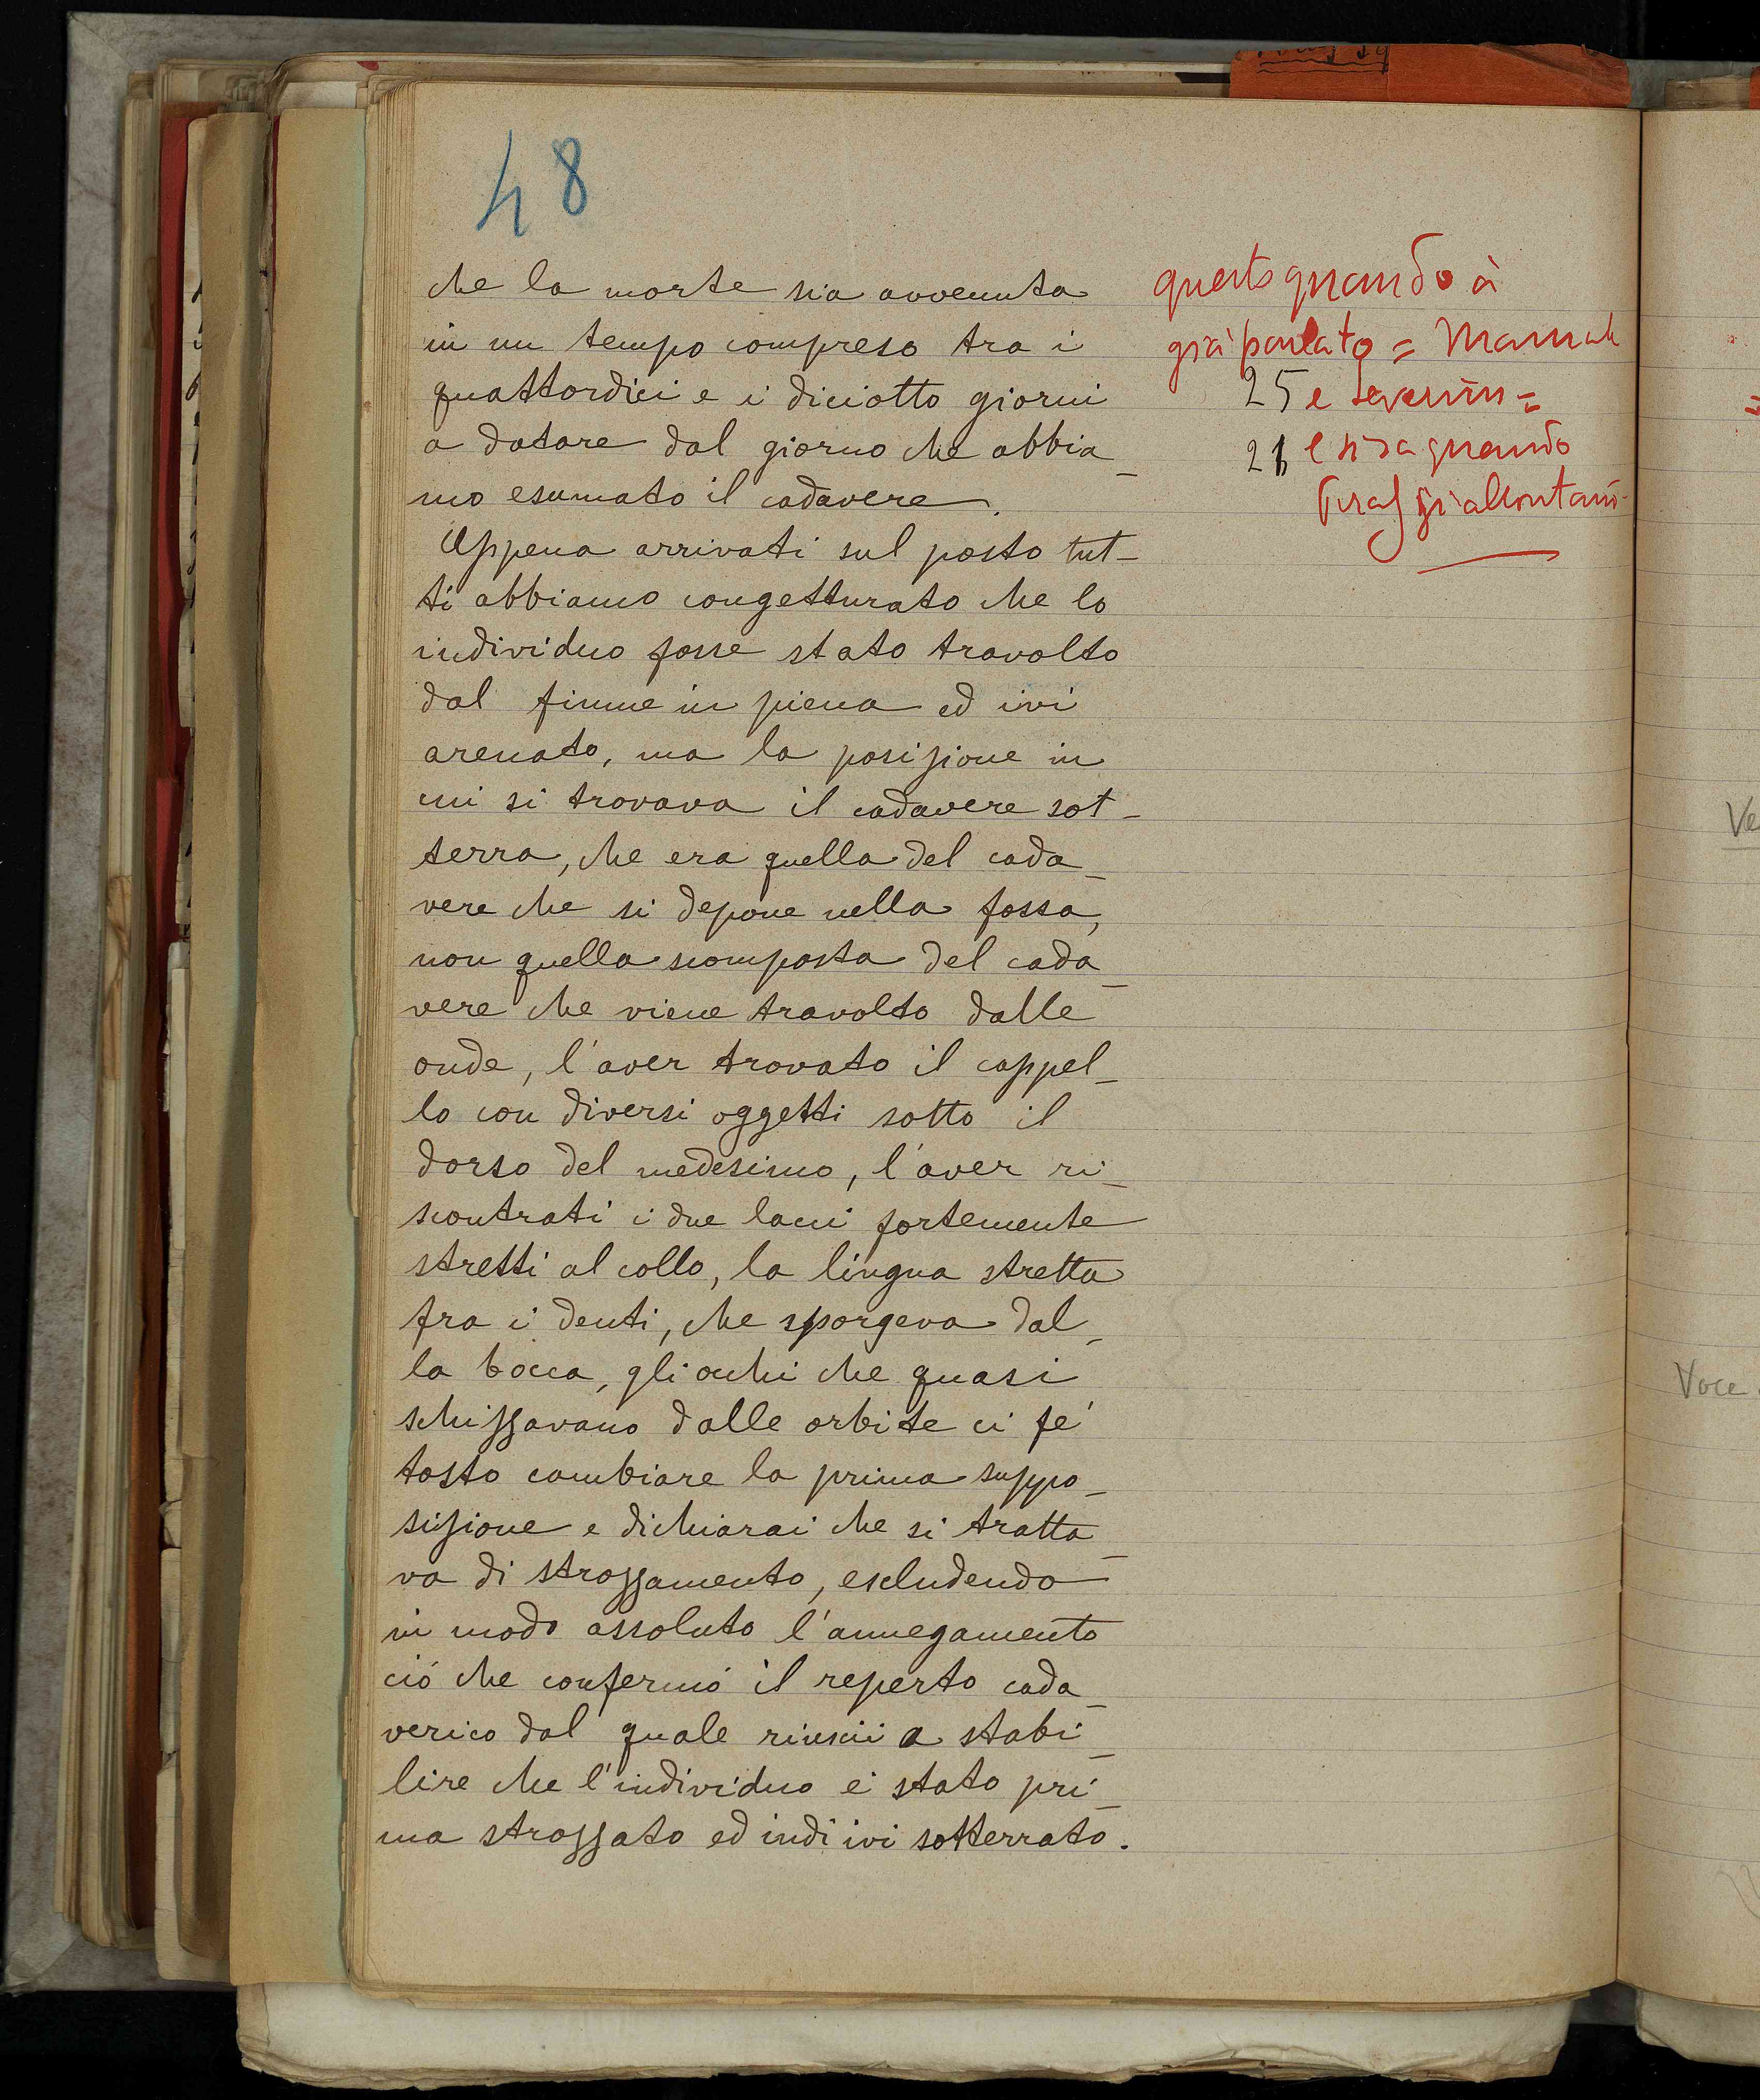 48
che la morte sia avvenuta
in un tempo compreso tra i
quattordici e i diciotto giorni
a datare dal giorno che abbia_
mo esumato il cadavere.
Appena arrivati sul posto tut_
ti abbiamo congetturato che lo
individuo fosse stato travolto
dal fiume in piena ed ivi
arenato, ma la posizione in
cui si trovava il cadavere sot_
terra, che era quella del cada_
vere che si depone nella fossa,
non quella scomposta del cada_
vere che viene travolto dalle
onde, l'aver trovato il cappel_
lo con diversi oggetti sotto il
dorso del medesimo, l'aver ri_
scontrati i due lacci fortemente
stretti al collo, la lingua stretta
fra i denti, che sporgeva dal_
la bocca, gli occhi che quasi
schizzavano dalle orbite ci fé
tosto cambiare la prima suppo_
sizione e dichiarai che si tratta_
va di strozzamento, escludendo
in modo assoluto l'annegamento
ció che confermó il reperto cada_
verico dal quale riuscii a stabi_
lire che l'individuo é stato pri_
ma strozzato ed indi ivi sotterrato.
questo quando à
già parlato =
25 e =
21 e si sa quando
si allontanò
Ve
Voce